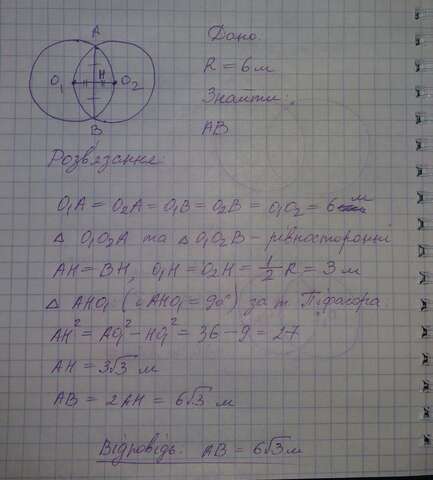 A
H
O₁ O₂
B
Дано:
R = 6 м
Знайти:
AB
Розв'язання:
O₁A = O₂A = O₁B = O₂B = O₁O₂ = 6 м
△ O₁O₂A та △ O₁O₂B – рівносторонні
AH = BH, O₁H = O₂H = 1/2 R = 3 м
△ AHO₁ (∠AHO₁ = 90°) за т. Піфагора
AH² = AO₁² – HO₁² = 36 – 9 = 27
AH = 3√3 м
AB = 2AH = 6√3 м
Відповідь. AB = 6√3 м